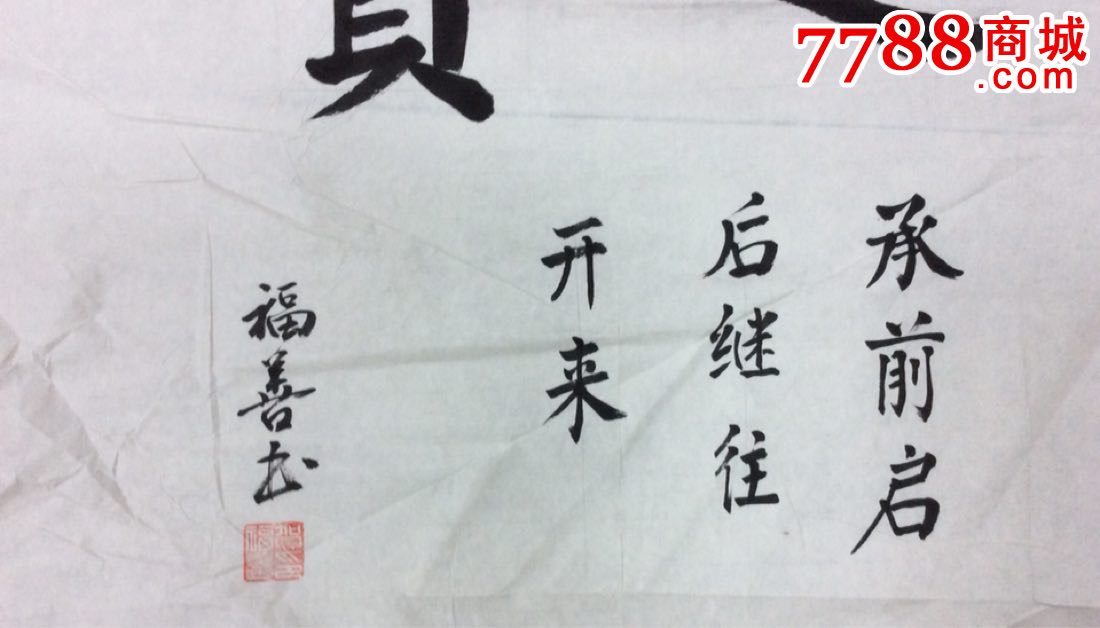 7788商城
.com
承前启
后继往
开来
福善书